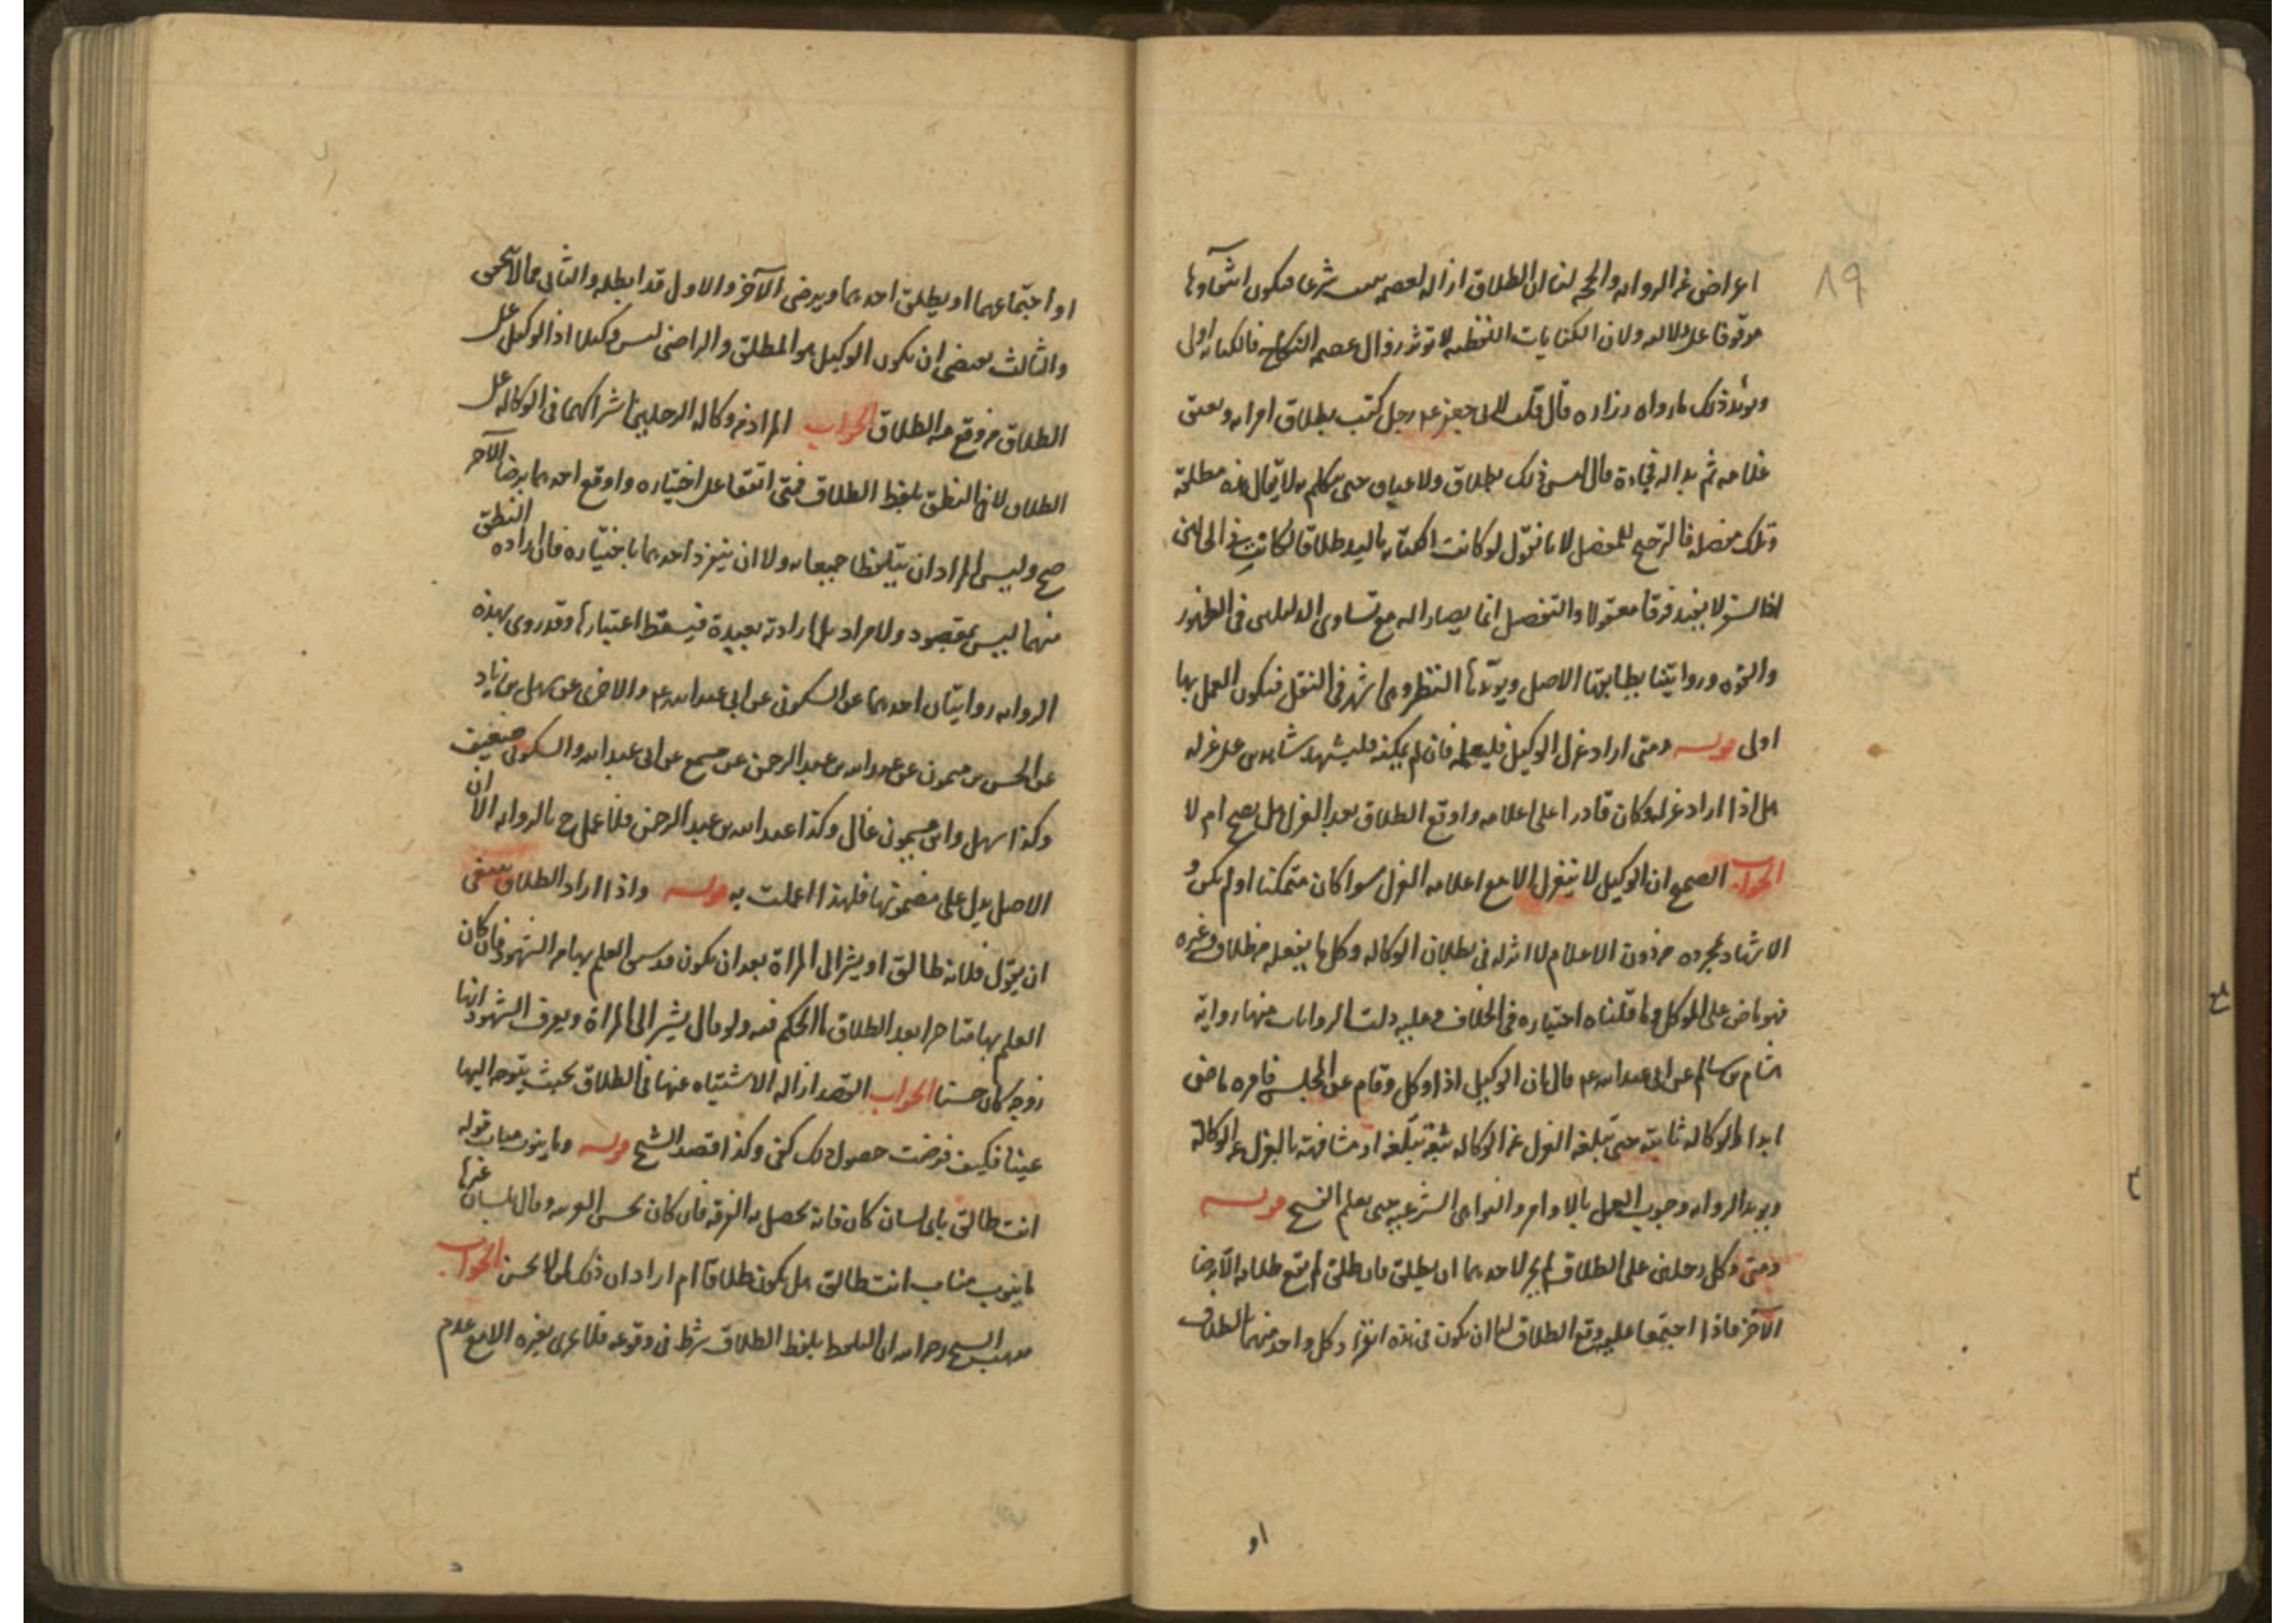 ١٩
اعراض عن الروايه والحجه لنا ان الطلاق ازاله لعصمه شرعا فيكون انتفاوها
موقوفا على دلاله ولان الكنايات اللفظيه لا توثر زوال عصمه النكاح فالكتابه اولى
ويؤيد ذلك ما رواه زراره قال قلت لابى جعفر عم رجل كتب بطلاق امراته وبعتق
غلامه ثم بدا له فمحاه قال ليس ذلك بطلاق ولا عتاق حتى يتكلم به لا يقال هذه مطلقه
وتلك مفصله فالترجيح للمفصل لانا نقول لو كانت الكتابه باليد طلاقا لكانت فى الحالين
اذ السفر لا يفيد فرقا معقولا والتفصيل انما يصار اليه مع تساوى الدليلين فى الظهور
والقوه وروايتنا يطابقها الاصل ويؤيدها النظر وهى اشهر فى النقل فيكون العمل بها
اولى قوله ومتى اراد عزل الوكيل فليعلمه فان لم يمكنه فليشهد شاهدين على عزله
هل اذا اراد عزله وكان قادرا على اعلامه واوقع الطلاق بعد العزل هل يصح ام لا
الجواب الصحيح ان الوكيل لا ينعزل الا مع اعلامه العزل سوا كان متمكنا او لم يكن و
الاشهاد بمجرده من دون الاعلام لا اثر له فى بطلان الوكاله وكل ما يفعله من طلاق وغيره
فهو ماض على الموكل وما قلناه اختياره فى الخلاف وعليه دلت الروايات منها رواية
هشام بن سالم عن ابى عبد الله عم قال ان الوكيل اذا وكل وقام عن المجلس فامره ماض
ابدا والوكاله ثابته حتى يبلغه العزل عن الوكاله بثقه يبلغه او مشافهه بالعزل عن الوكالة
ويؤيد الروايه وجوب العمل بالاوامر والنواهى الشرعيه حتى يعلم النسخ قوله
ومتى وكل رجلين على الطلاق لم يجز لاحدهما ان يطلق فان طلق لم يقع طلاقه الا برضا
الآخر فاذا اجتمعا عليه وقع الطلاق لنا ان يكون فى هذه انفراد كل واحد منهما بالطلاق
او
او اجتماعهما او يطلق احدهما ويرضى الآخر والاول قد ابطله والثانى محال لا يحصى
والثالث يقتضى ان يكون الوكيل هو المطلق والراضى ليس وكيلا اذ الوكيل على
الطلاق من وقع منه الطلاق الجواب المراد من وكاله الرجلين اشراكهما فى الوكاله على
الطلاق لا فى النطق بلفظ الطلاق فمتى اتفقا على اختياره واوقع احدهما برضا الآخر
صح وليس المراد ان يتلفظا جميعا به ولا ان ينفرد احدهما باختياره فان اراده النطق
منهما ليس بمقصود ولا مراد بل ارادته بعيدة فيسقط اعتبارها وقد روى بهذه
الروايه روايتان احدهما عن السكونى عن ابى عبد الله عم والاخرى عن سهل بن زياد
عن الحسن بن ميمون عن عبد الله بن عبد الرحمن عن مسمع عن ابى عبد الله والسكونى ضعيف
وكذا سهل وابن ميمون غال وكذا عبد الله بن عبد الرحمن فلا عمل ح بالروايه الا ان
الاصل يدل على مضمونها فلهذا اعملت به قوله واذا اراد الطلاق ينبغى
ان يقول فلانه طالق او يشير الى المراة بعد ان يكون قد سبق العلم بها من الشهود فان كان
العلم بها متاخرا بعد الطلاق ما الحكم فيه ولو قال يشير الى المراة ويعرف الشهود انها
زوجه كان حسنا الجواب القصد ازاله الاشتباه عنها فى الطلاق بحيث يتوجه اليها
عينا فكيف فرضت حصول ذلك كفى وكذا قصد الشيخ قوله وما ينوب مناب قوله
انت طالق باى لسان كان فانه يحصل به الفرقه فان كان يحسن العربيه وقال بلسان غيرها
ما ينوب مناب انت طالق هل يكون طلاقا ام اراد ان ذلك لمن لا يحسن الجواب
مذهب الشيخ رحمه الله ان التلفظ بلفظ الطلاق شرط فى وقوعه فلا يجزى بغيره الا مع عدم